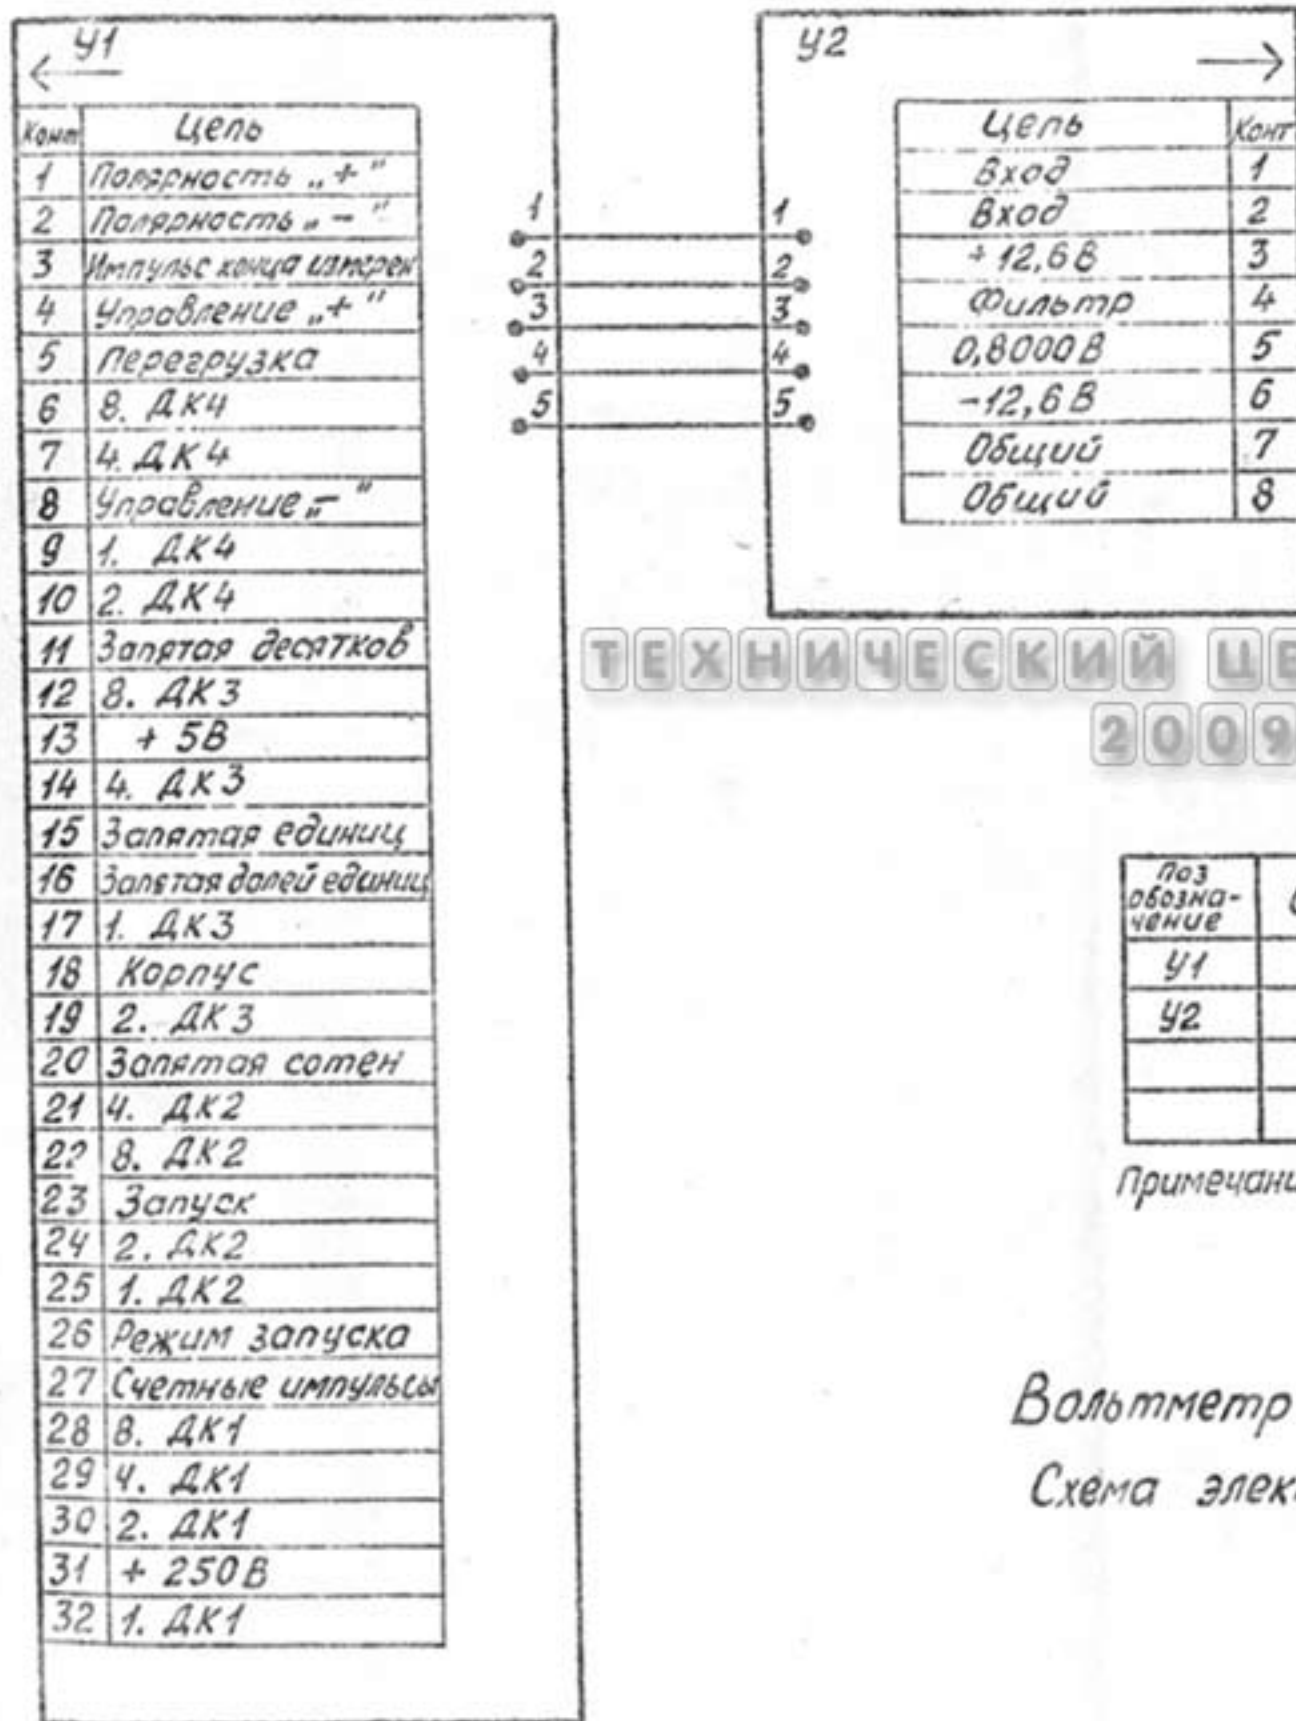 У1
Конт Цепь
1 Полярность „+"
2 Полярность „-"
3 Импульс конца измерен
4 Управление „+"
5 Перегрузка
6 8. ДК4
7 4. ДК4
8 Управление „-"
9 1. ДК4
10 2. ДК4
11 Запятая десятков
12 8. ДК3
13 + 5В
14 4. ДК3
15 Запятая единиц
16 Запятая долей единиц
17 1. ДК3
18 Корпус
19 2. ДК3
20 Запятая сотен
21 4. ДК2
22 8. ДК2
23 Запуск
24 2. ДК2
25 1. ДК2
26 Режим запуска
27 Счетные импульсы
28 8. ДК1
29 4. ДК1
30 2. ДК1
31 + 250В
32 1. ДК1
1 1
2 2
3 3
4 4
5 5
У2
Цепь Конт
Вход 1
Вход 2
+12,6В 3
Фильтр 4
0,8000В 5
-12,6В 6
Общий 7
Общий 8
ТЕХНИЧЕСКИЙ ЦЕ
2009
Поз
обозна-
чение
У1
У2
Примечани
Вольтметр
Схема элек